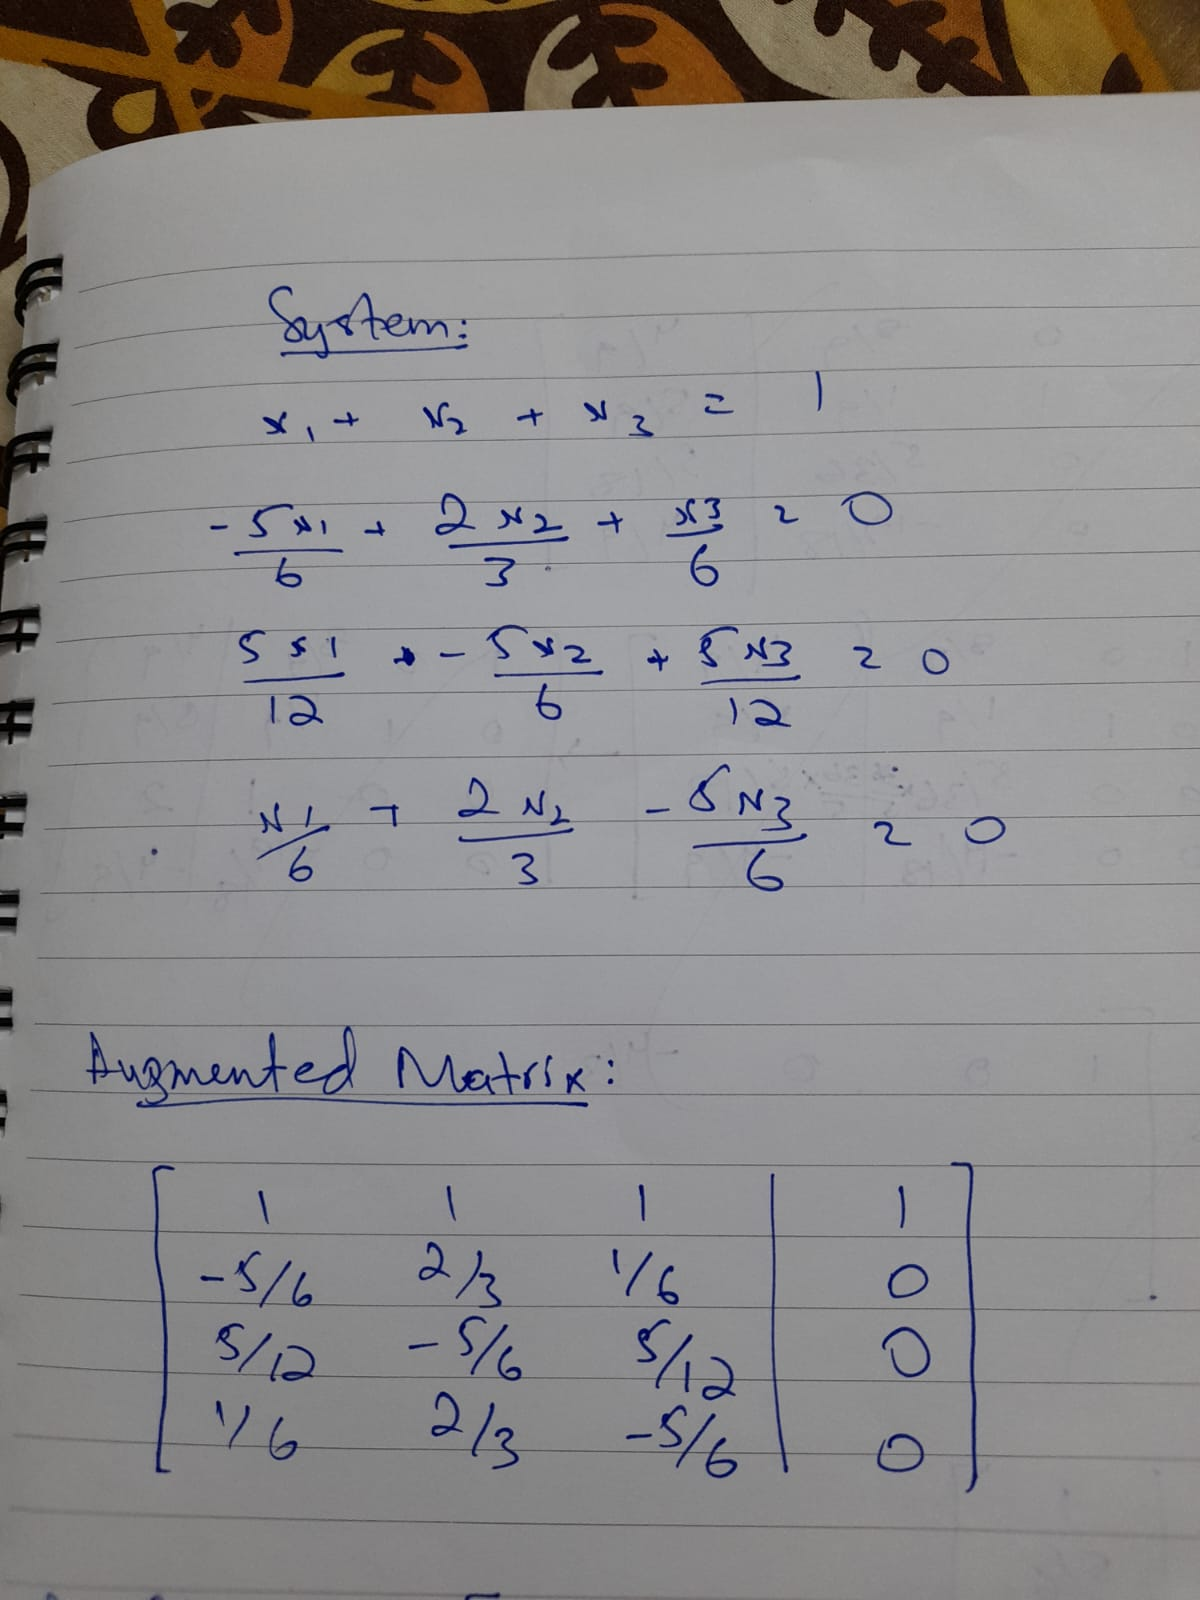 System:
x₁ + x₂ + x₃ = 1
-5x1/6 + 2x2/3 + x3/6 = 0
5x1/12 + -5x2/6 + 5x3/12 = 0
x1/6 + 2x2/3 -5x3/6 = 0
Augmented Matrix:
1 1 1 | 1
-5/6 2/3 1/6 | 0
5/12 -5/6 5/12 | 0
1/6 2/3 -5/6 | 0